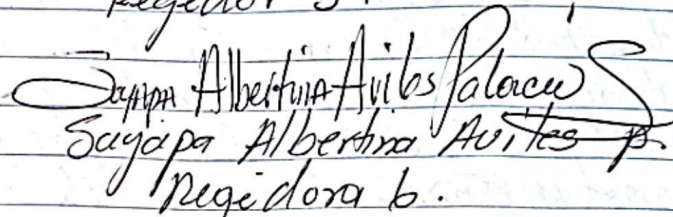 Regidor 5
Sayapa Albertina Aviles Palacios
Sayapa Albertina Aviles p.
Regidora 6.